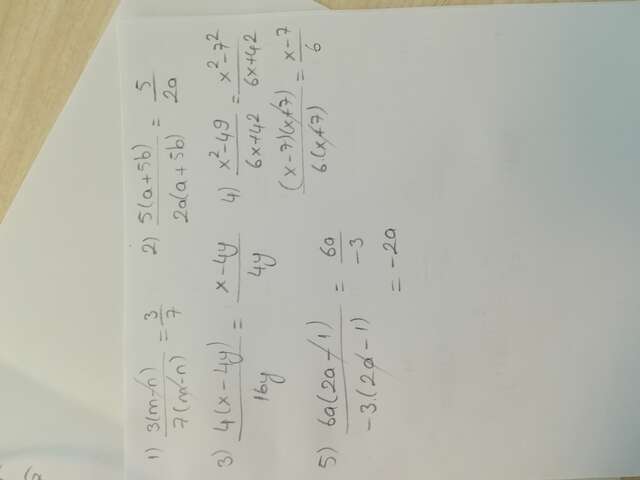 1) 3(m-n)/7(m-n) = 3/7
2) 5(a+5b)/2a(a+5b) = 5/2a
3) 4(x-4y)/16y = x-4y/4y
4) x²-49/6x+42 = x²-7²/6x+42
(x-7)(x+7)/6.(x+7) = x-7/6
5) 6a(2a-1)/-3.(2a-1) = 6a/-3
= -2a